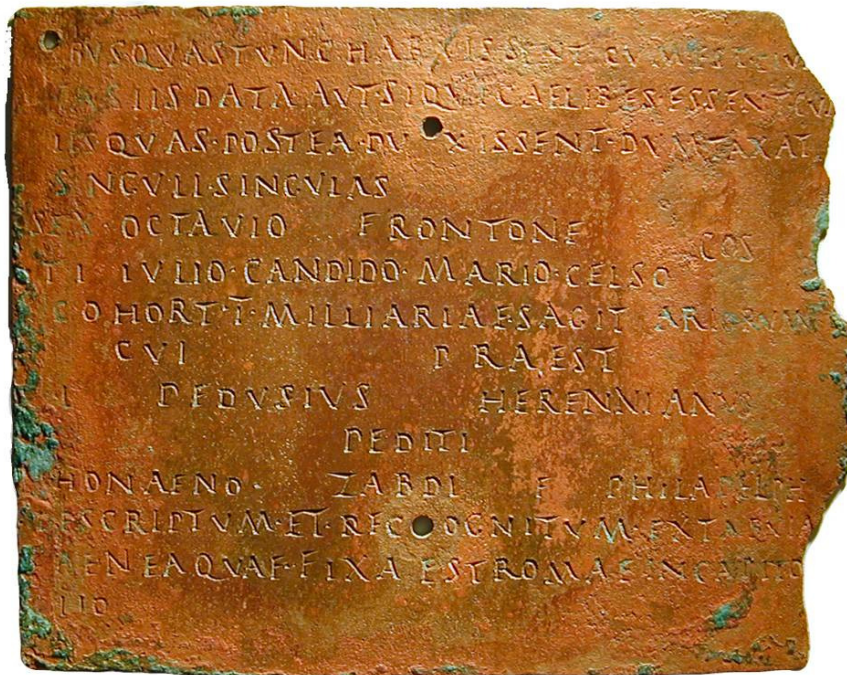 BVSQVASTVNCHABVISSENT CVM EST CIVI
TAS IIS DATA·AVTSIQVI CAELIBES·ESSENT CVM
IIS QVAS·POSTEA·DVXISSENT·DVMTAXAT
SINGVLI·SINGVLAS
SEX OCTAVIO FRONTONE
COS
TI IVLIO·CANDIDO·MARIO·CELSO
COHORT·I·MILLIARIAE SAGITTARIOR
CVI PRAEST
PEDVSIVS HERENNIANVS
PEDITI
ZABDI F PHILADELPH
DESCRIPTVM·ET·RECOGNITVM·EXTABVLA
AENEAQVAE·FIXA ESTROMAE INCAPITO
LIO